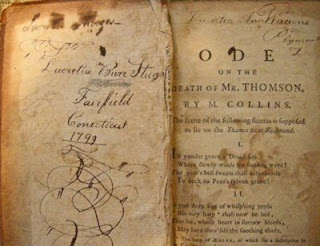 Lucretia
Fairfield
Conecticut
1799
Lucretia Ann
ODE
ON THE
DEATH OF MR. THOMSON.
BY M. COLLINS.
The scene of the following stanzas is supposed
to lie on the Thames near Richmond.
I.
IN yonder grave a Druid lies
Where slowly winds the stealing wave!
The year's best sweets shall
To deck its Poet's sylvan grave!
II.
IN yon deep bed of whisp'ring reeds
His airy harp * shall now be laid,
That he, whose heart in sorrow bleeds,
May love thro' life the soothing shade.
* The harp of ÆOLUS, of which see a description in